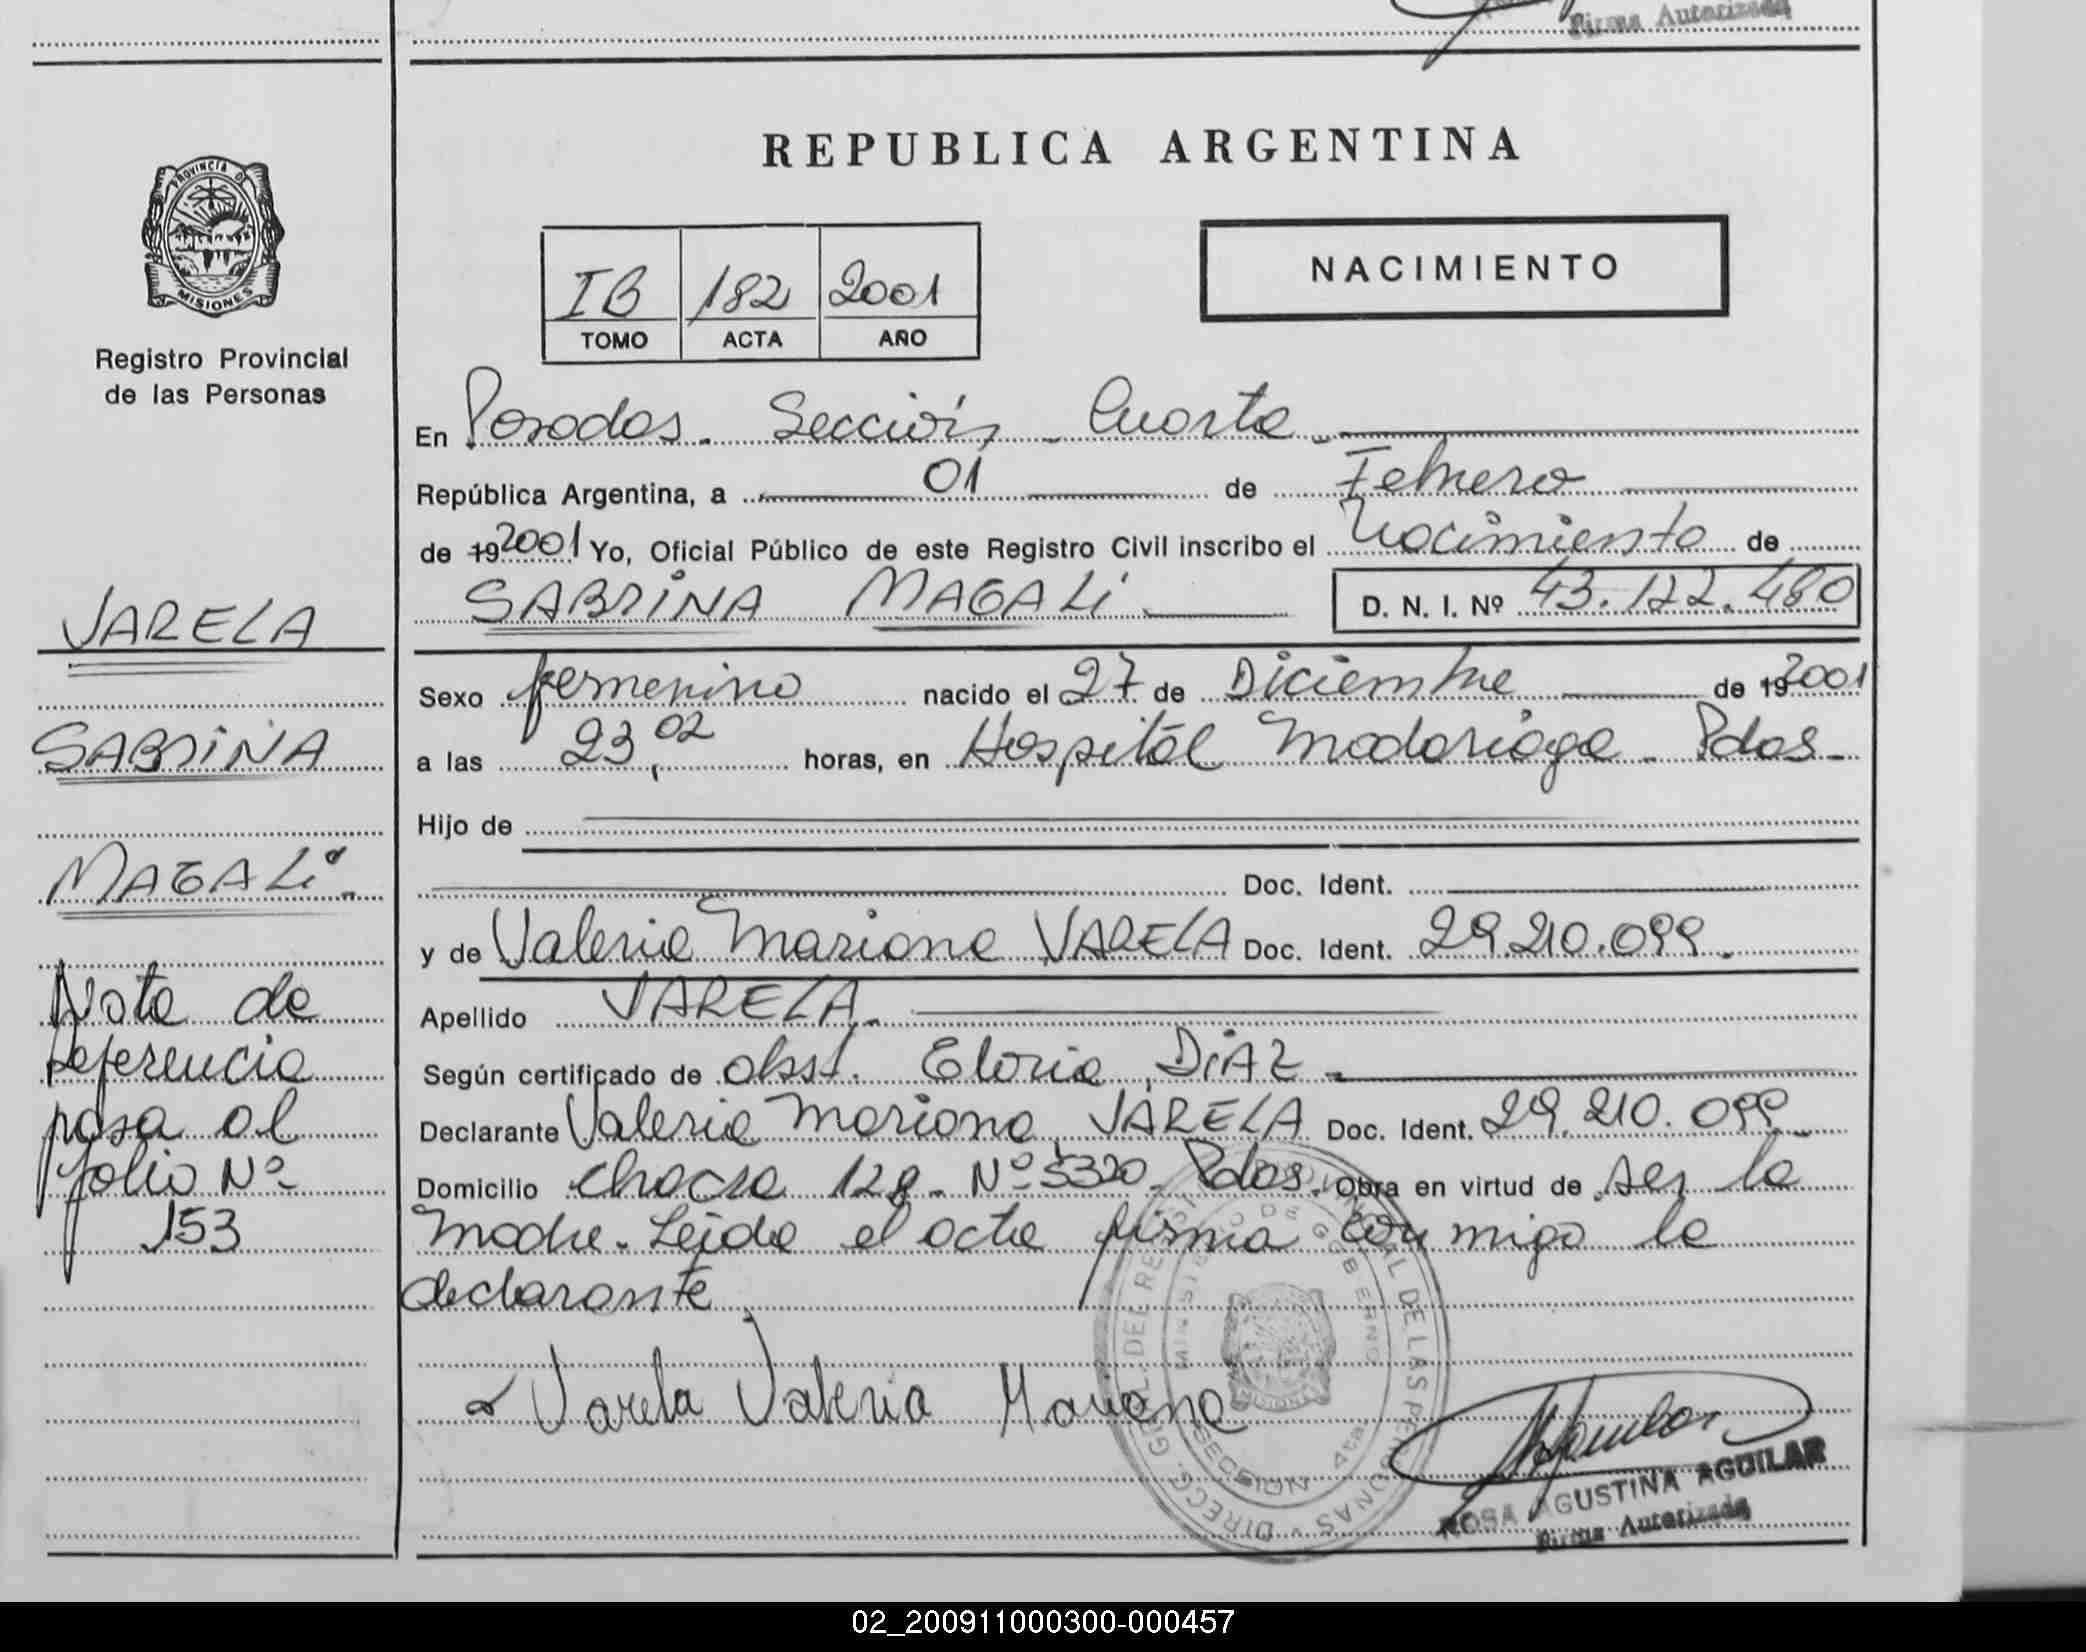 Firma Autorizada
PROVINCIA DE
MISIONES
Registro Provincial
de las Personas
REPUBLICA ARGENTINA
IB 182 2001
TOMO ACTA AÑO
NACIMIENTO
En Posadas. Sección Cuarta
República Argentina, a 01 de Febrero
de 19 2001 Yo, Oficial Público de este Registro Civil inscribo el Nacimiento de
SABRINA MAGALI D. N. I. Nº 43.122.480
VARELA
Sexo femenino nacido el 27 de Diciembre de 19 2001
SABRINA
a las 23,02 horas, en Hospital Madariaga - Pdas -
Hijo de
MAGALI.
Doc. Ident.
y de Valeria Mariana VARELA Doc. Ident. 29.210.099.
Nota de
Referencia
pasa al
folio Nº
153
Apellido VARELA.
Según certificado de obst. Gloria DIAZ -
Declarante Valeria Mariana VARELA Doc. Ident. 29.210.099
Domicilio chacra 128. Nº 5320. Pdas. Obra en virtud de ser la
madre. Leída el acta firma conmigo la
declarante
Varela Valeria Mariana
DIRECC. GRAL. DEL REGISTRO PROVINCIAL DE LAS PERSONAS
MINISTERIO DE GOBIERNO
SECCION 4ta.
ROSA AGUSTINA AGUILAR
Firma Autorizada
02_200911000300-000457